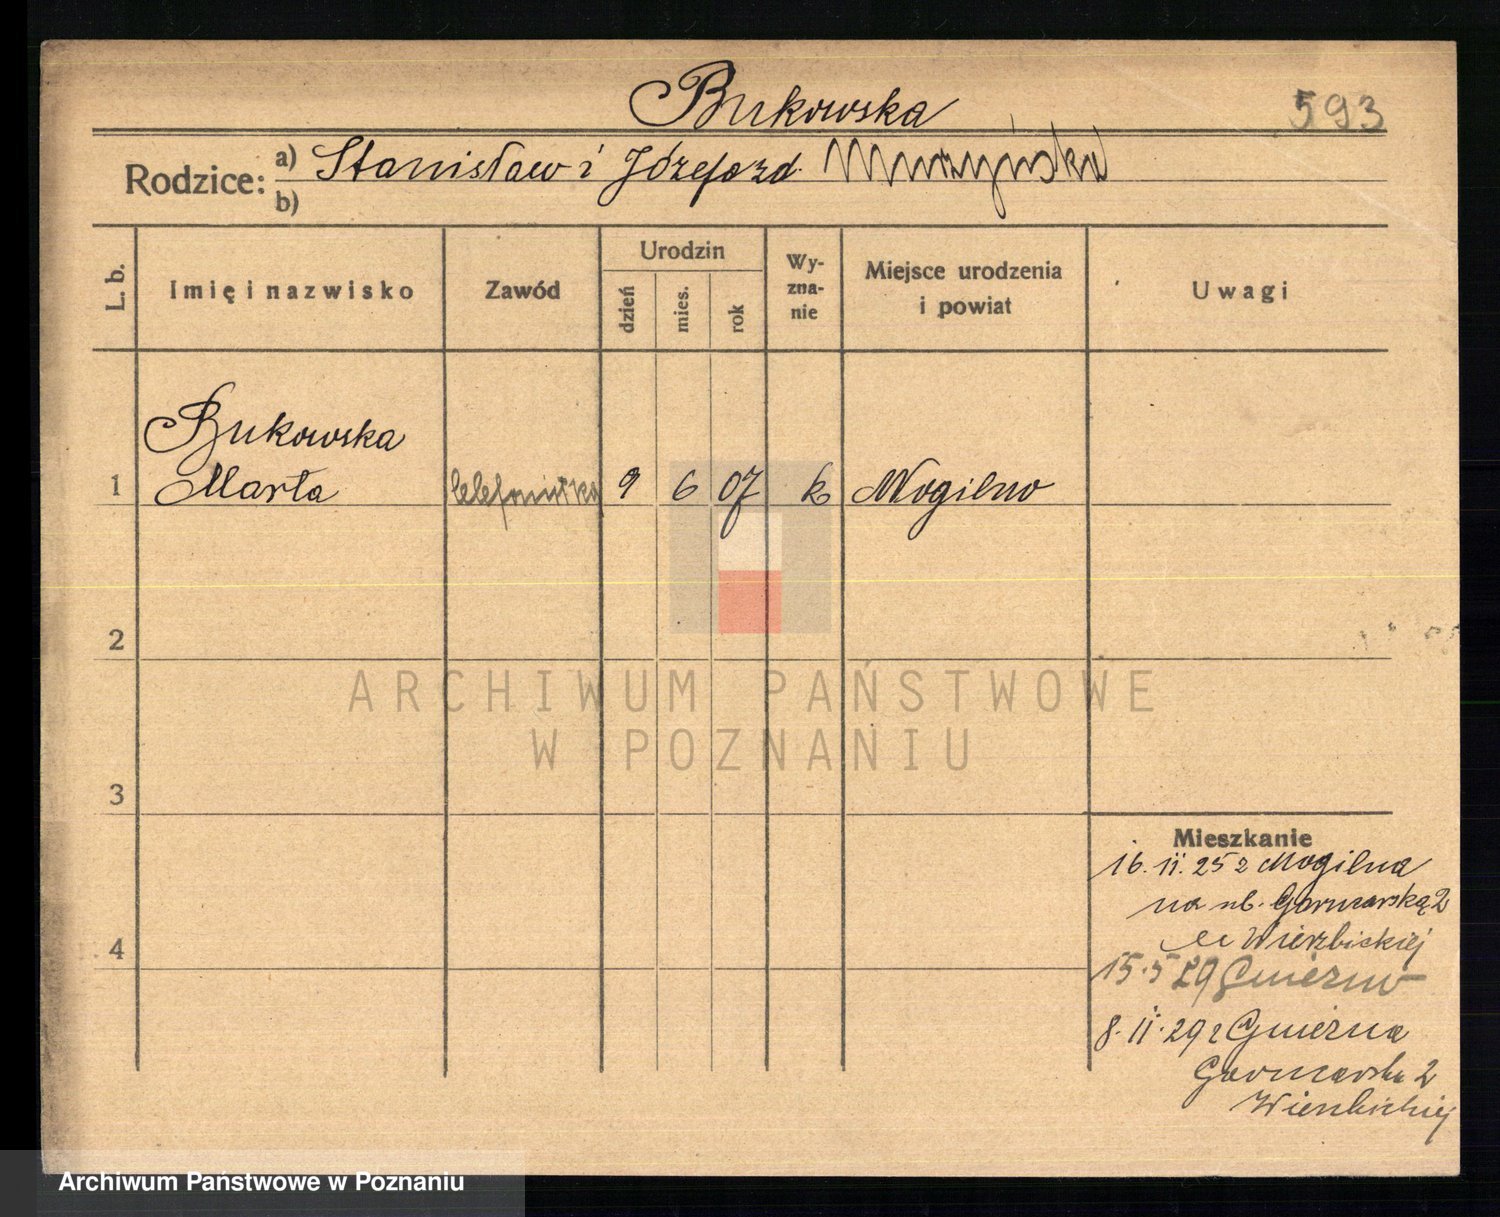 Bukowska
593
Rodzice:
a) Stanisław i Józefa zd. Murzyńska
b)
L. b.
Imię i nazwisko
Zawód
Urodzin
dzień
mies.
rok
Wy-
zna-
nie
Miejsce urodzenia
i powiat
Uwagi
Bukowska
1 Marta telefonistka 9 6 07 k Mogilno
2
3
4
ARCHIWUM PAŃSTWOWE
W POZNANIU
Mieszkanie
16. 11. 25 z Mogilna
na ul. Garncarską 2
Wierzbickiej
15.5 29 Gniezno
8. 11. 29 z Gniezna
Garncarska 2
Wierzbickiej
Archiwum Państwowe w Poznaniu